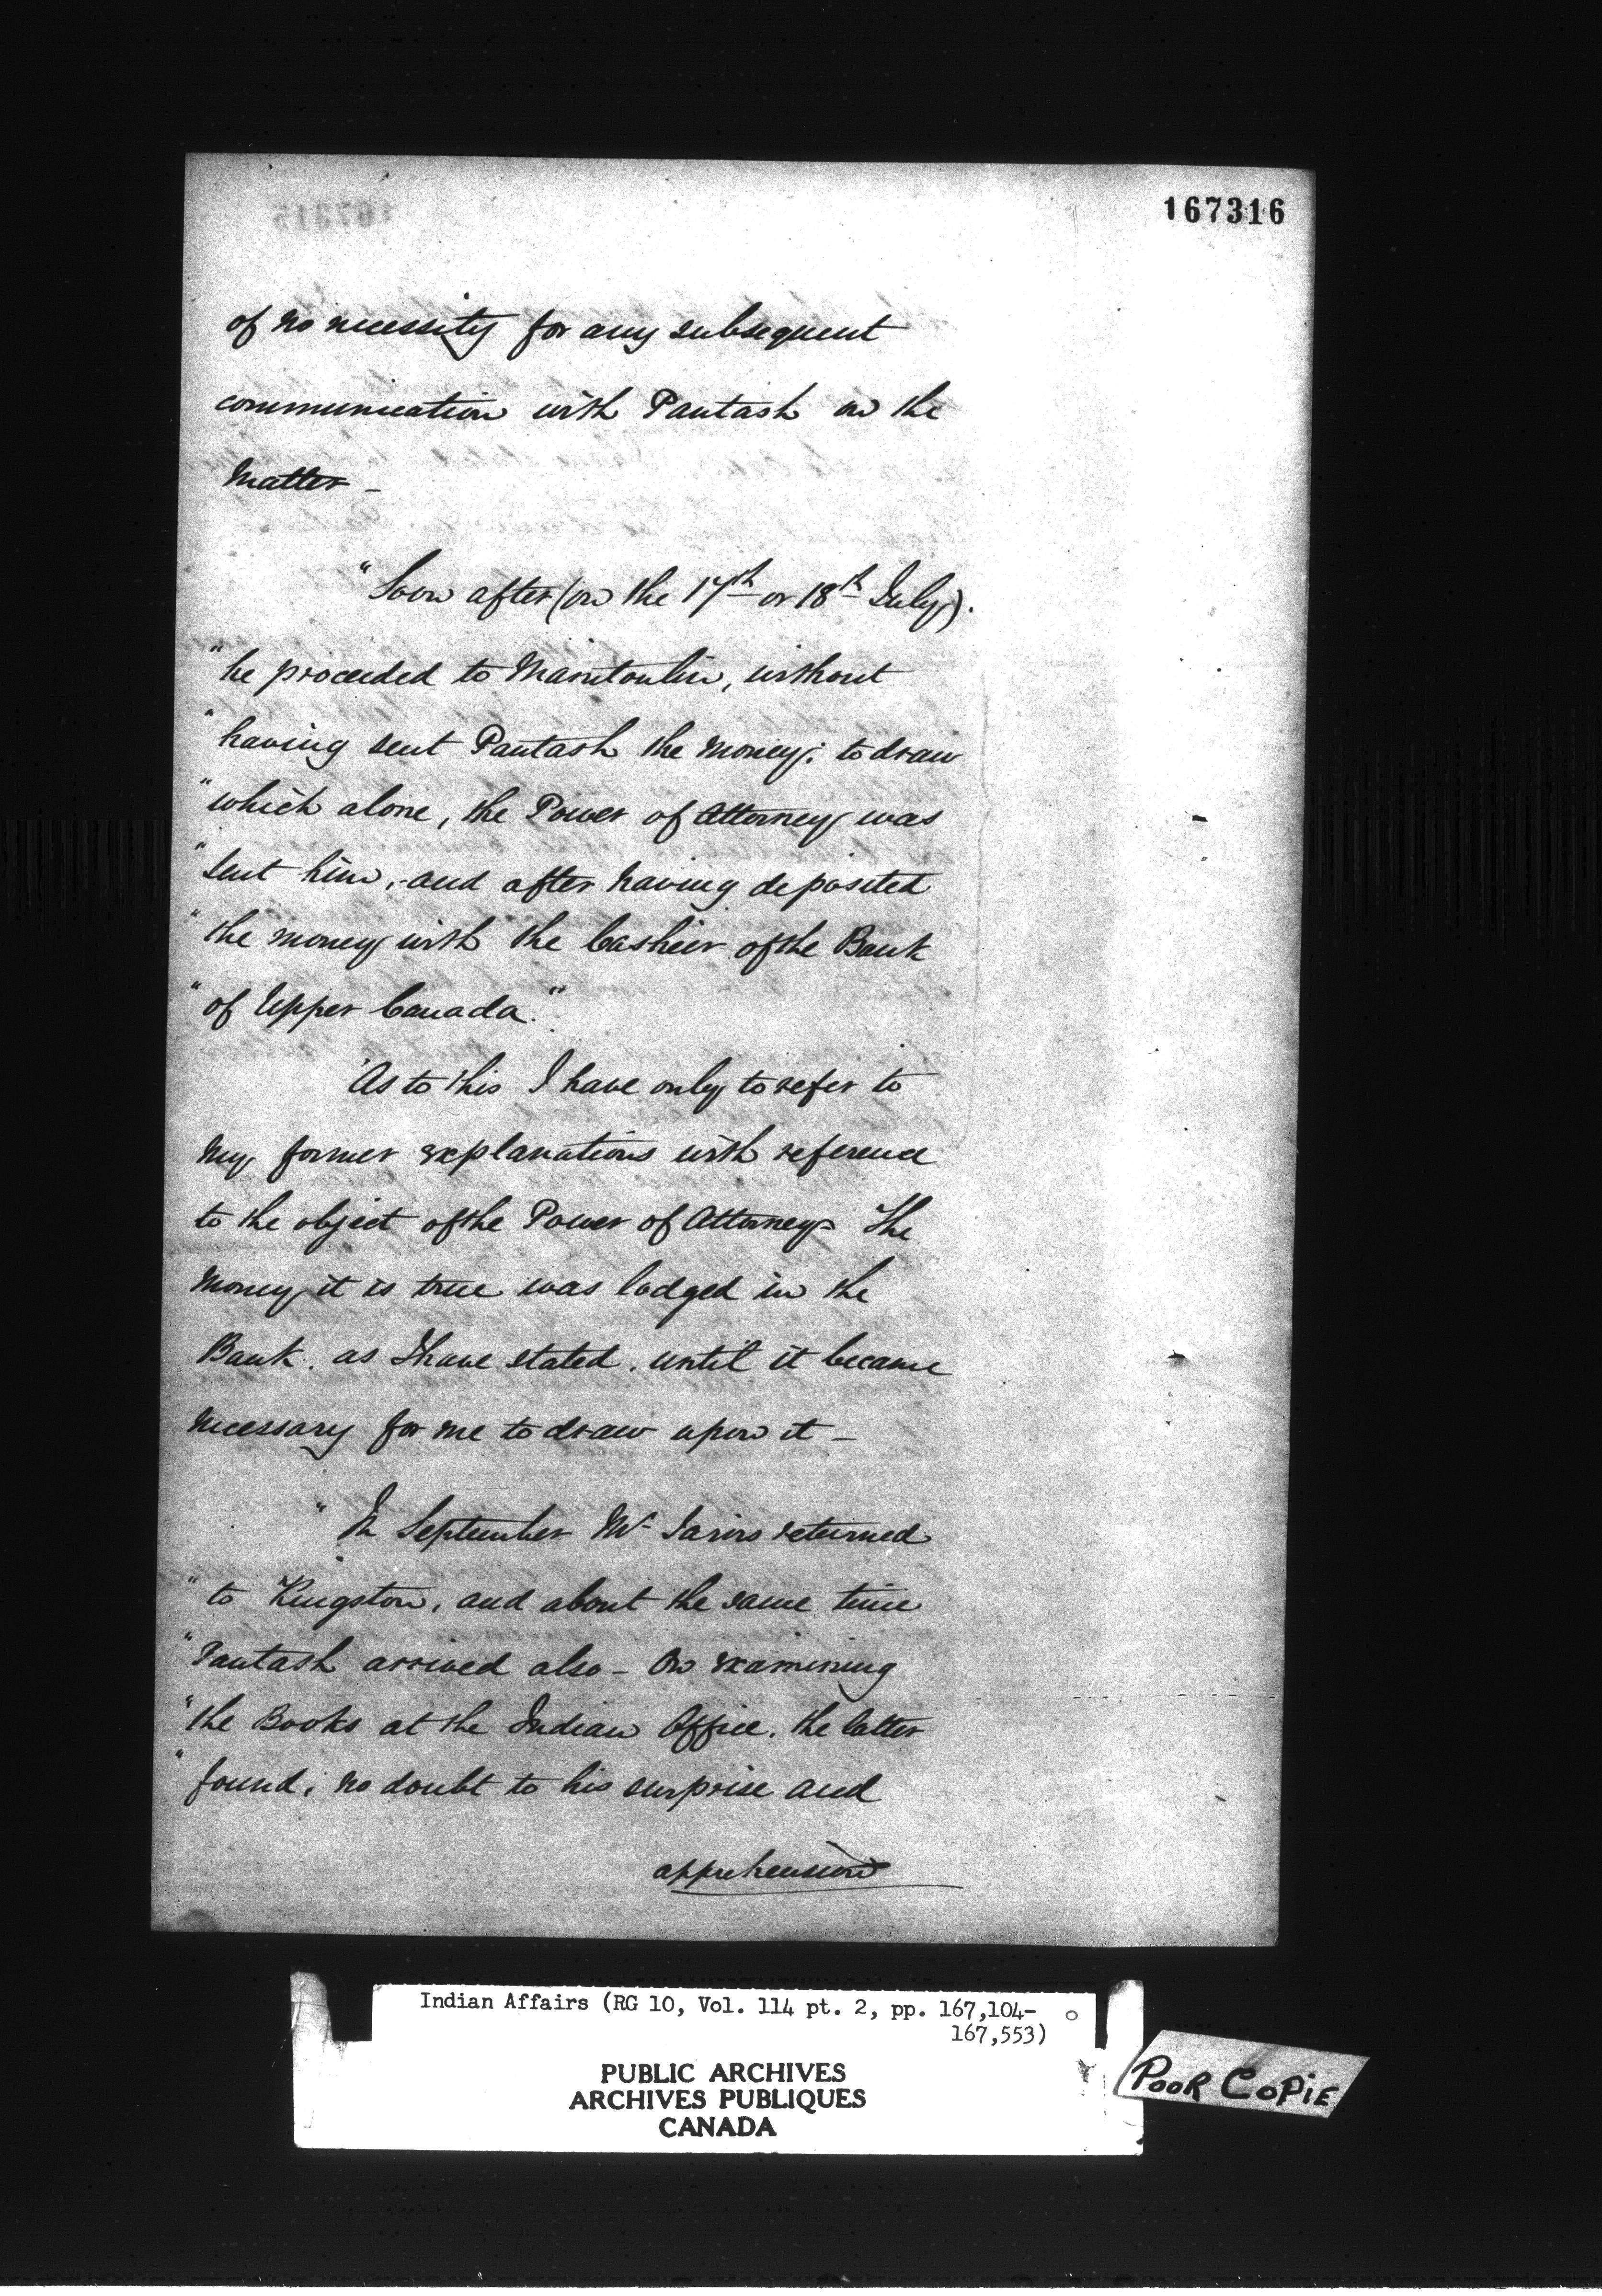 167316
of no necessity for any subsequent
communication with Pautash on the
Matter –
"Soon after (on the 17th or 18th July).
"he proceeded to Manitoulin, without
"having sent Pautash the money; to draw
"which alone, the Power of Attorney was
"sent him, and after having deposited
"the money with the Cashier of the Bank
"of Upper Canada."
As to this I have only to refer to
my former explanations with reference
to the object of the Power of Attorney – The
money it is true was lodged in the
Bank. as I have stated. until it became
necessary for me to draw upon it –
"In September Mr Jarvis returned
"to Kingston, and about the same time
"Pautash arrived also – On examining
"the Books at the Indian Office, the latter
"found; no doubt to his surprise and
apprehension
Indian Affairs (RG 10, Vol. 114 pt. 2, pp. 167,104-
167,553)
PUBLIC ARCHIVES
ARCHIVES PUBLIQUES
CANADA
POOR COPIE